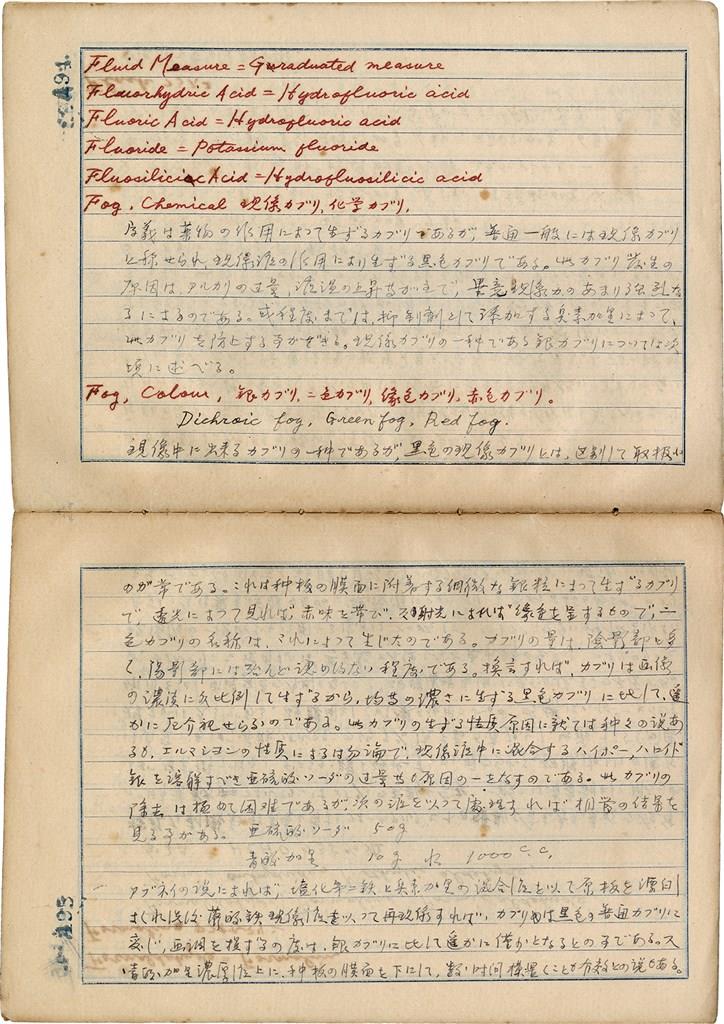 494
Fluid Measure = Guraduated measure
Fluorhydric Acid = Hydrofluoric acid
Fluoric Acid = Hydrofluoric acid
Fluoride = Potassium fluoride
Fluosilicic Acid = Hydrofluosilicic acid
Fog, Chemical 現像カブリ, 化学カブリ,
広義は薬物の作用によって生ずるカブリであるが, 普通一般には現像カブリ
と称せられ, 現像液の作用により生ずる黒色カブリである。此カブリ発生の
原因は, アルカリの過量, 液温の上昇等が主で, 畢竟現像力のあまり強烈な
るによるのである。或程度までは, 抑制剤として添加する臭素加里によって,
此カブリを防止する事ができる。現像カブリの一種である銀カブリについては次
項に述べる。
Fog, Colour, 銀カブリ, 二色カブリ, 緑色カブリ, 赤色カブリ。
Dichroic fog, Green fog, Red fog.
現像中に出来るカブリの一種であるが, 黒色の現像カブリとは, 区別して取扱ふ
のが常である。これは種板の膜面に附着する細微な銀粒によって生ずるカブリ
で, 透光によって見れば, 赤味を帯び, 反射光によれば緑色を呈するもので, 二
色カブリの名称は, これによって生じたのである。カブリの量は, 陰影部に多
く, 陽影部には殆んど認められない程度である。換言すれば, カブリは画像
の濃淡に反比例して生ずるから, 均等の濃さに生ずる黒色カブリに比して, 遥
かに厄介視せらるのである。此カブリの生ずる性質原因に就ては種々の説あ
るが, エルマションの性質によるは勿論で, 現像液中に混合するハイポー, ハロイド
銀を溶解すべき亜硫酸ソーダの過量等も原因の一をなすのである。此カブリの
除去は極めて困難であるが, 次の液を以って処理すれば相当の結果を
見る事がある。 亜硫酸ソーダ 50g
青酸加里 10g 水 1000 c.c.
アブネイの説によれば, 塩化第二鉄と臭素加里の混合液を以て原板を漂白
し, 蓚酸鉄現像液を以って再現像すれば, カブリは黒色の普通カブリに
変じ, 画調を損するの度は, 銀カブリに比して遥かに僅かとなるとの事である。又
青酸加里濃厚液上に, 種板の膜面を下にして, 数時間横置くことも有効との説もある。
495